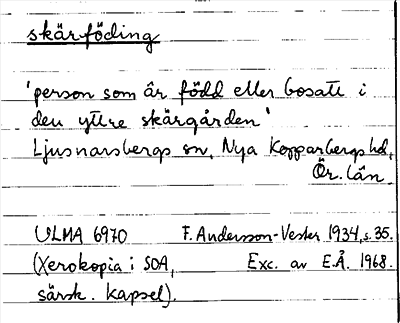 skärföding
'person som är född eller bosatt i
den yttre skärgården'
Ljusnarsbergs sn, Nya Kopparbergs hd,
Ör. län.
ULMA 6970 F. Andersson-Vester 1934, s. 35.
(Xerokopia i SOA, Exc. av E.Å. 1968.
särsk. kapsel).